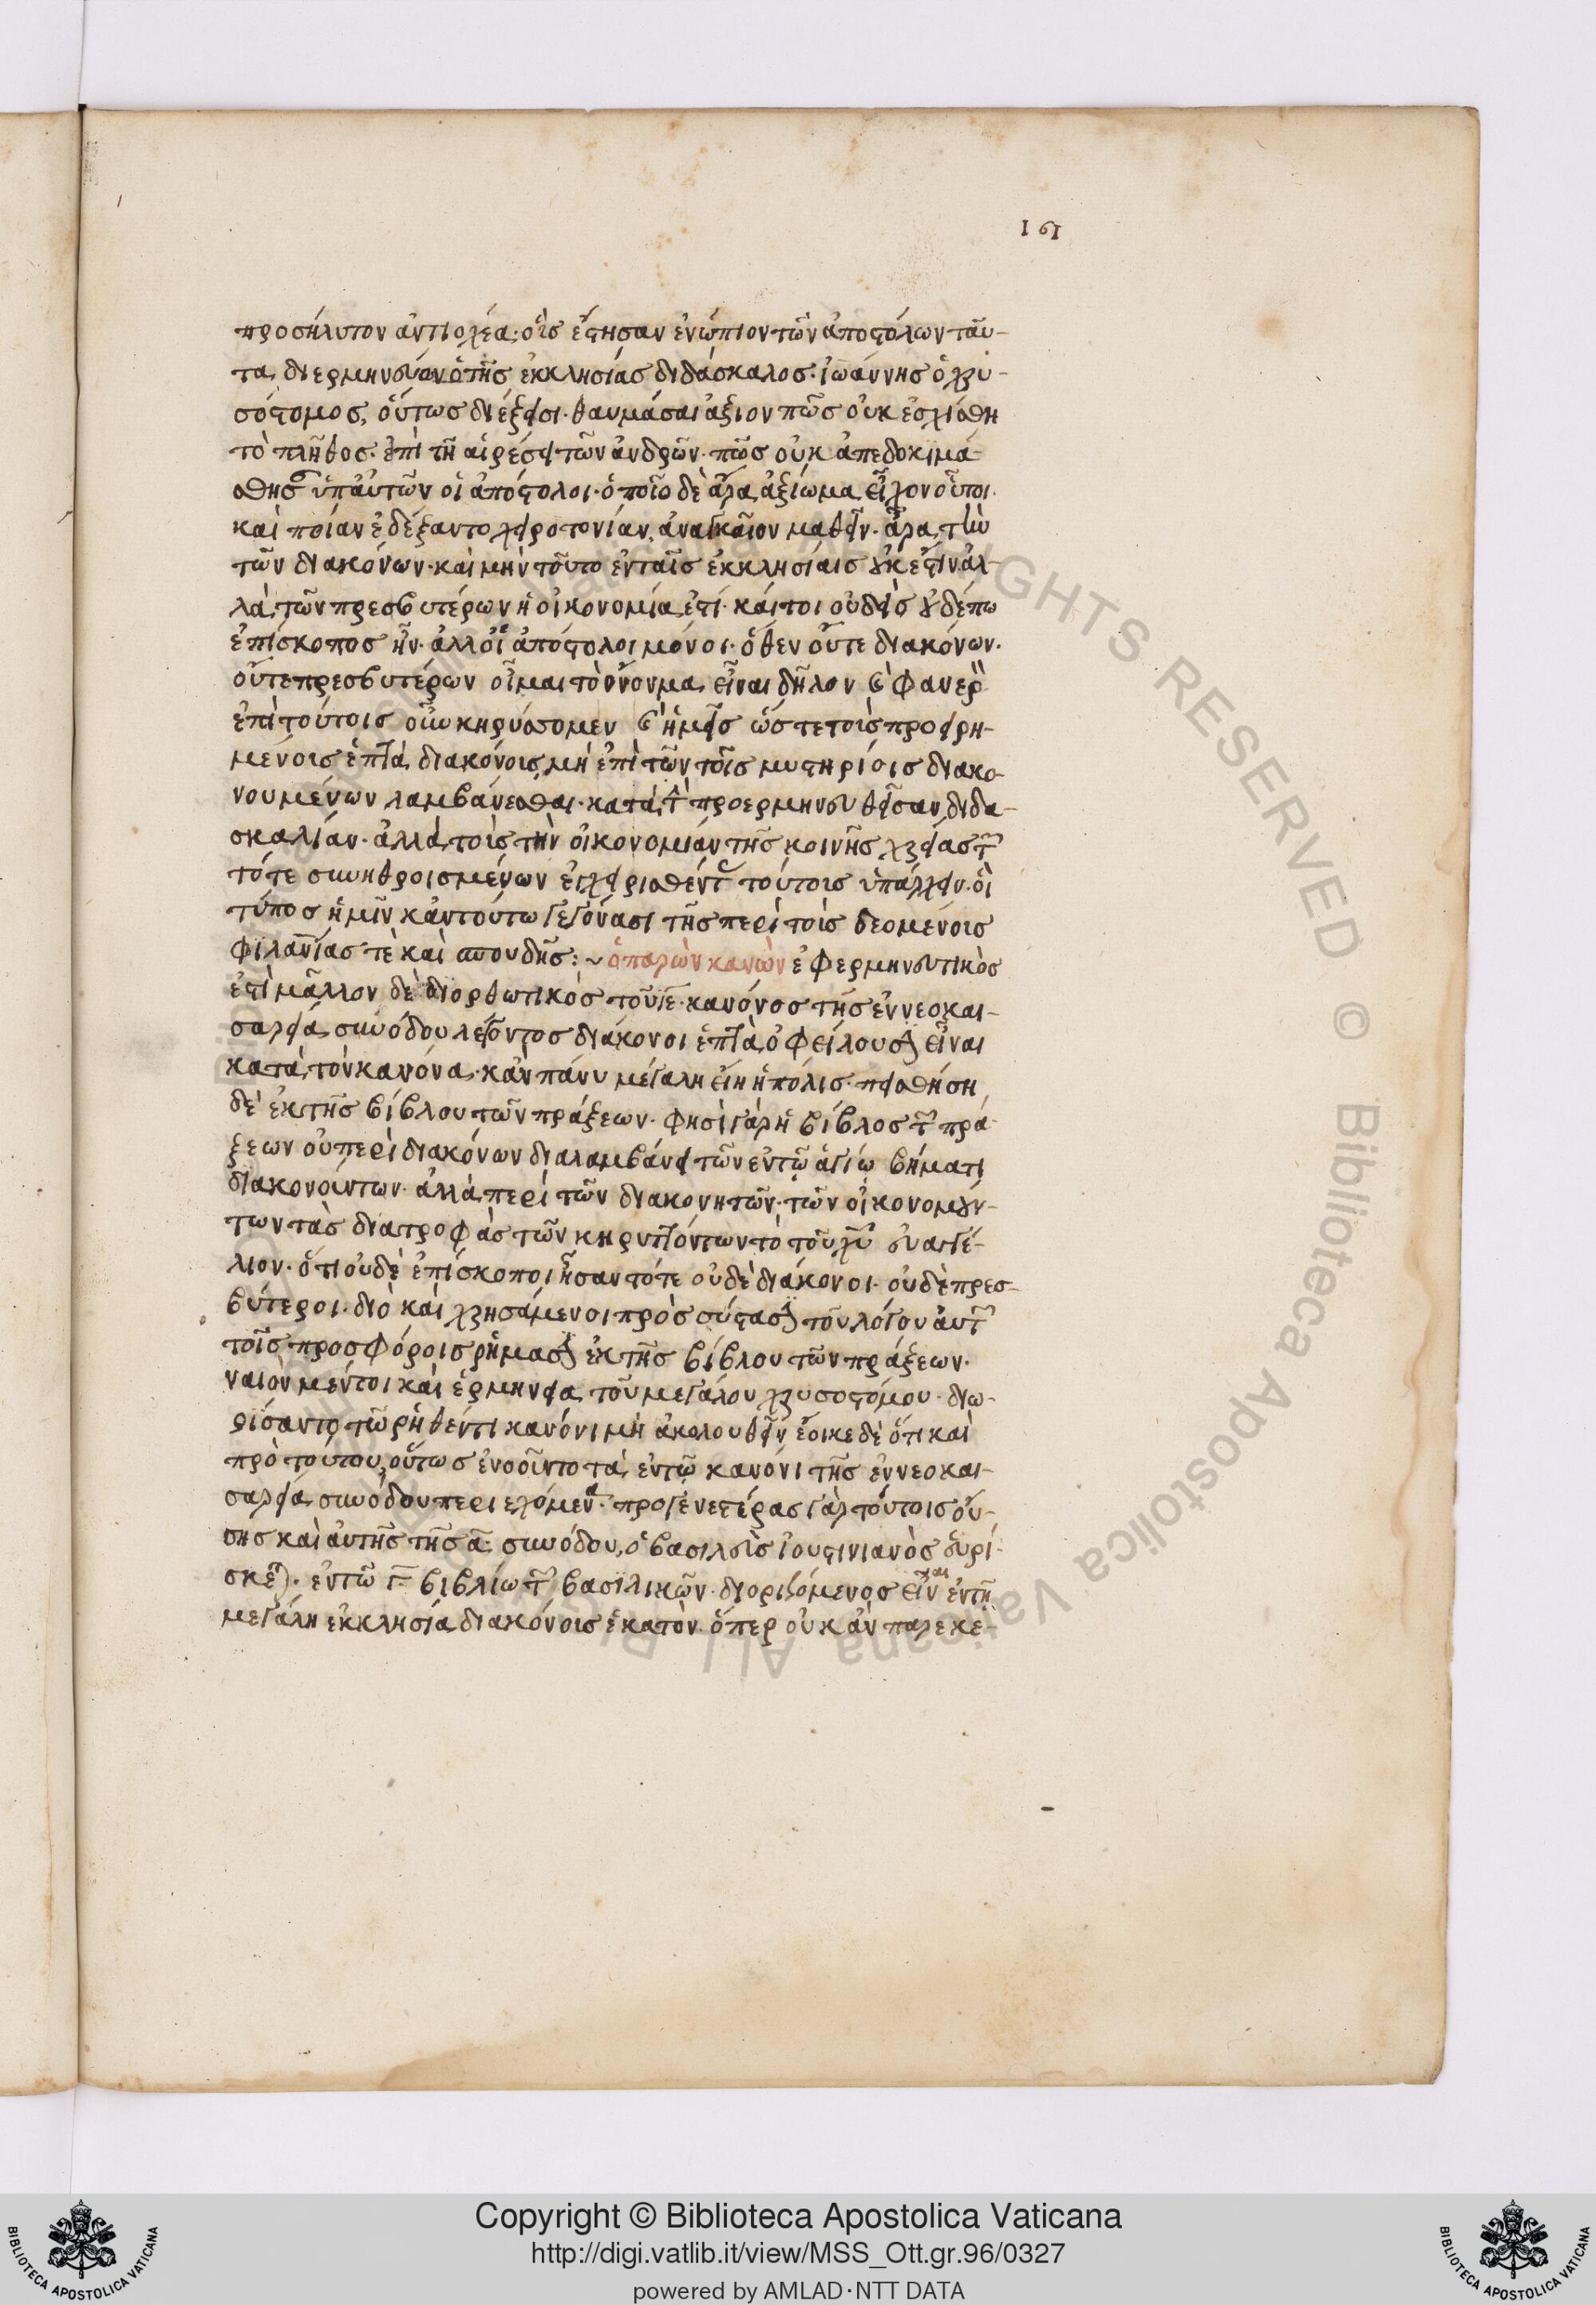 161
προσήλυτον ἀντιοχέα· οὓς ἔστησαν ἐνώπιον τῶν ἀποστόλων ταῦ-
τα, διερμηνεύων ὁ τῆς ἐκκλησίας διδάσκαλος. ἰωάννης ὁ χρυ-
σόστομος, οὕτως διέξεισι· θαυμάσαι ἄξιον πῶς οὐκ ἐσχίσθη
τὸ πλῆθος. ἐπὶ τῇ αἱρέσει τῶν ἀνδρῶν. πῶς οὐκ ἀπεδοκιμά-
σθησ ὑπ αὐτῶν οἱ ἀπόστολοι· ὁποῖο δὲ ἄρα, ἀξίωμα, εἶχον οὗτοι.
καὶ ποίαν ἐδέξαντο χειροτονίαν, ἀναγκαῖον μαθεῖν. ἆρα, τὴν
τῶν διακόνων· καὶ μὴν τοῦτο ἐν ταῖς ἐκκλησίαις οὐκ ἔστιν ἀλ-
λὰ, τῶν πρεσβυτέρων ἡ οἰκονομία, ἐστί· καίτοι οὐδεὶς οὐδέπω
ἐπίσκοπος ἦν· ἀλλ οἱ ἀπόστολοι μόνοι· ὅθεν οὔτε διακόνων.
οὔτε πρεσβυτέρων οἶμαι τὸ ὄνομα, εἶναι δῆλον καὶ φανερὸν
ἐπὶ τούτοις οὖν κηρύσσομεν καὶ ἡμεῖς ὥστε τοῖς προειρη-
μένοις ἑπτὰ, διακόνοις, μὴ ἐπὶ τῶν τοῖς μυστηρίοις διακο-
νουμένων λαμβάνεσθαι· κατὰ, τὴν προερμηνευθεῖσαν, διδα-
σκαλίαν· ἀλλὰ, τοῖς τὴν οἰκονομίαν τῆς κοινῆς χρείας τῶν
τότε συνηθροισμένων ἐγχειρισθέντων τούτοις ὑπάρχειν. οἳ
τύπος ἡμῖν κἂν τούτω γεγόνασι τῆς περὶ τοῖς δεομένοις
φιλανίας τὲ καὶ σπουδῆς :~ ὁ παρὼν κανὼν ἐφερμηνευτικὸς
ἐστὶ μᾶλλον δὲ διορθωτικὸς τοῦ ιε κανόνος τῆς ἐν νεοκαι-
σαρεία, συνόδου λέγοντος διάκονοι ἑπτὰ, ὀφείλουσιν εἶναι
κατὰ, τὸν κανόνα, κἂν πάνυ μεγάλη εἴη ἡ πόλις. πεισθήση,
δὲ ἐκ τῆς βίβλου τῶν πράξεων· φησὶ γὰρ ἡ βίβλος τῶν πρά-
ξεων οὐ περὶ διακόνων διαλαμβάνει τῶν ἐν τῷ ἁγίω βήματι
διακονούντων· ἀλλὰ, περὶ τῶν διακονητῶν· τῶν οἰκονομούν-
των τὰς διατροφὰς τῶν κηρυττόντων τὸ τοῦ χυ εὐαγγέ-
λιον· ὅτι οὐδὲ ἐπίσκοποι ἦσαν τότε οὐδὲ διάκονοι· οὐδὲ πρεσ-
βύτεροι· διὸ καὶ χρησάμενοι πρὸς σύστασιν τοῦ λόγου αὐτῶν
τοῖς προσφόροις ρήμασιν ἐκ τῆς βίβλου τῶν πράξεων·
ναὶ οὐ μέντοι καὶ ἑρμηνεία, τοῦ μεγάλου χρυσοστόμου· διω-
ρίσαντο τῶ ρηθέντι κανόνι μὴ ἀκολουθεῖν, ἔοικε δὲ ὅτι καὶ
πρὸ τούτου, οὕτως ἐνοοῦντο τὰ, ἐν τῷ κανόνι τῆς ἐν νεοκαι-
σαρεία, συνόδου περιεχόμενα· προγενεστέρας γὰρ τούτοις οὔ-
σης καὶ αὐτῆς τῆς α συνόδου, ὁ βασιλεὺς ἰουστινιανὸς εὑρί-
σκεται· ἐν τῶ γ βιβλίω τῶν βασιλικῶν· διοριζόμενος εἶναι ἐν τῇ
μεγάλη ἐκκλησία, διακόνοις ἑκατὸν. ὅπερ οὐκ ἂν παρεκε-
Copyright © Biblioteca Apostolica Vaticana
http://digi.vatlib.it/view/MSS_Ott.gr.96/0327
powered by AMLAD·NTT DATA